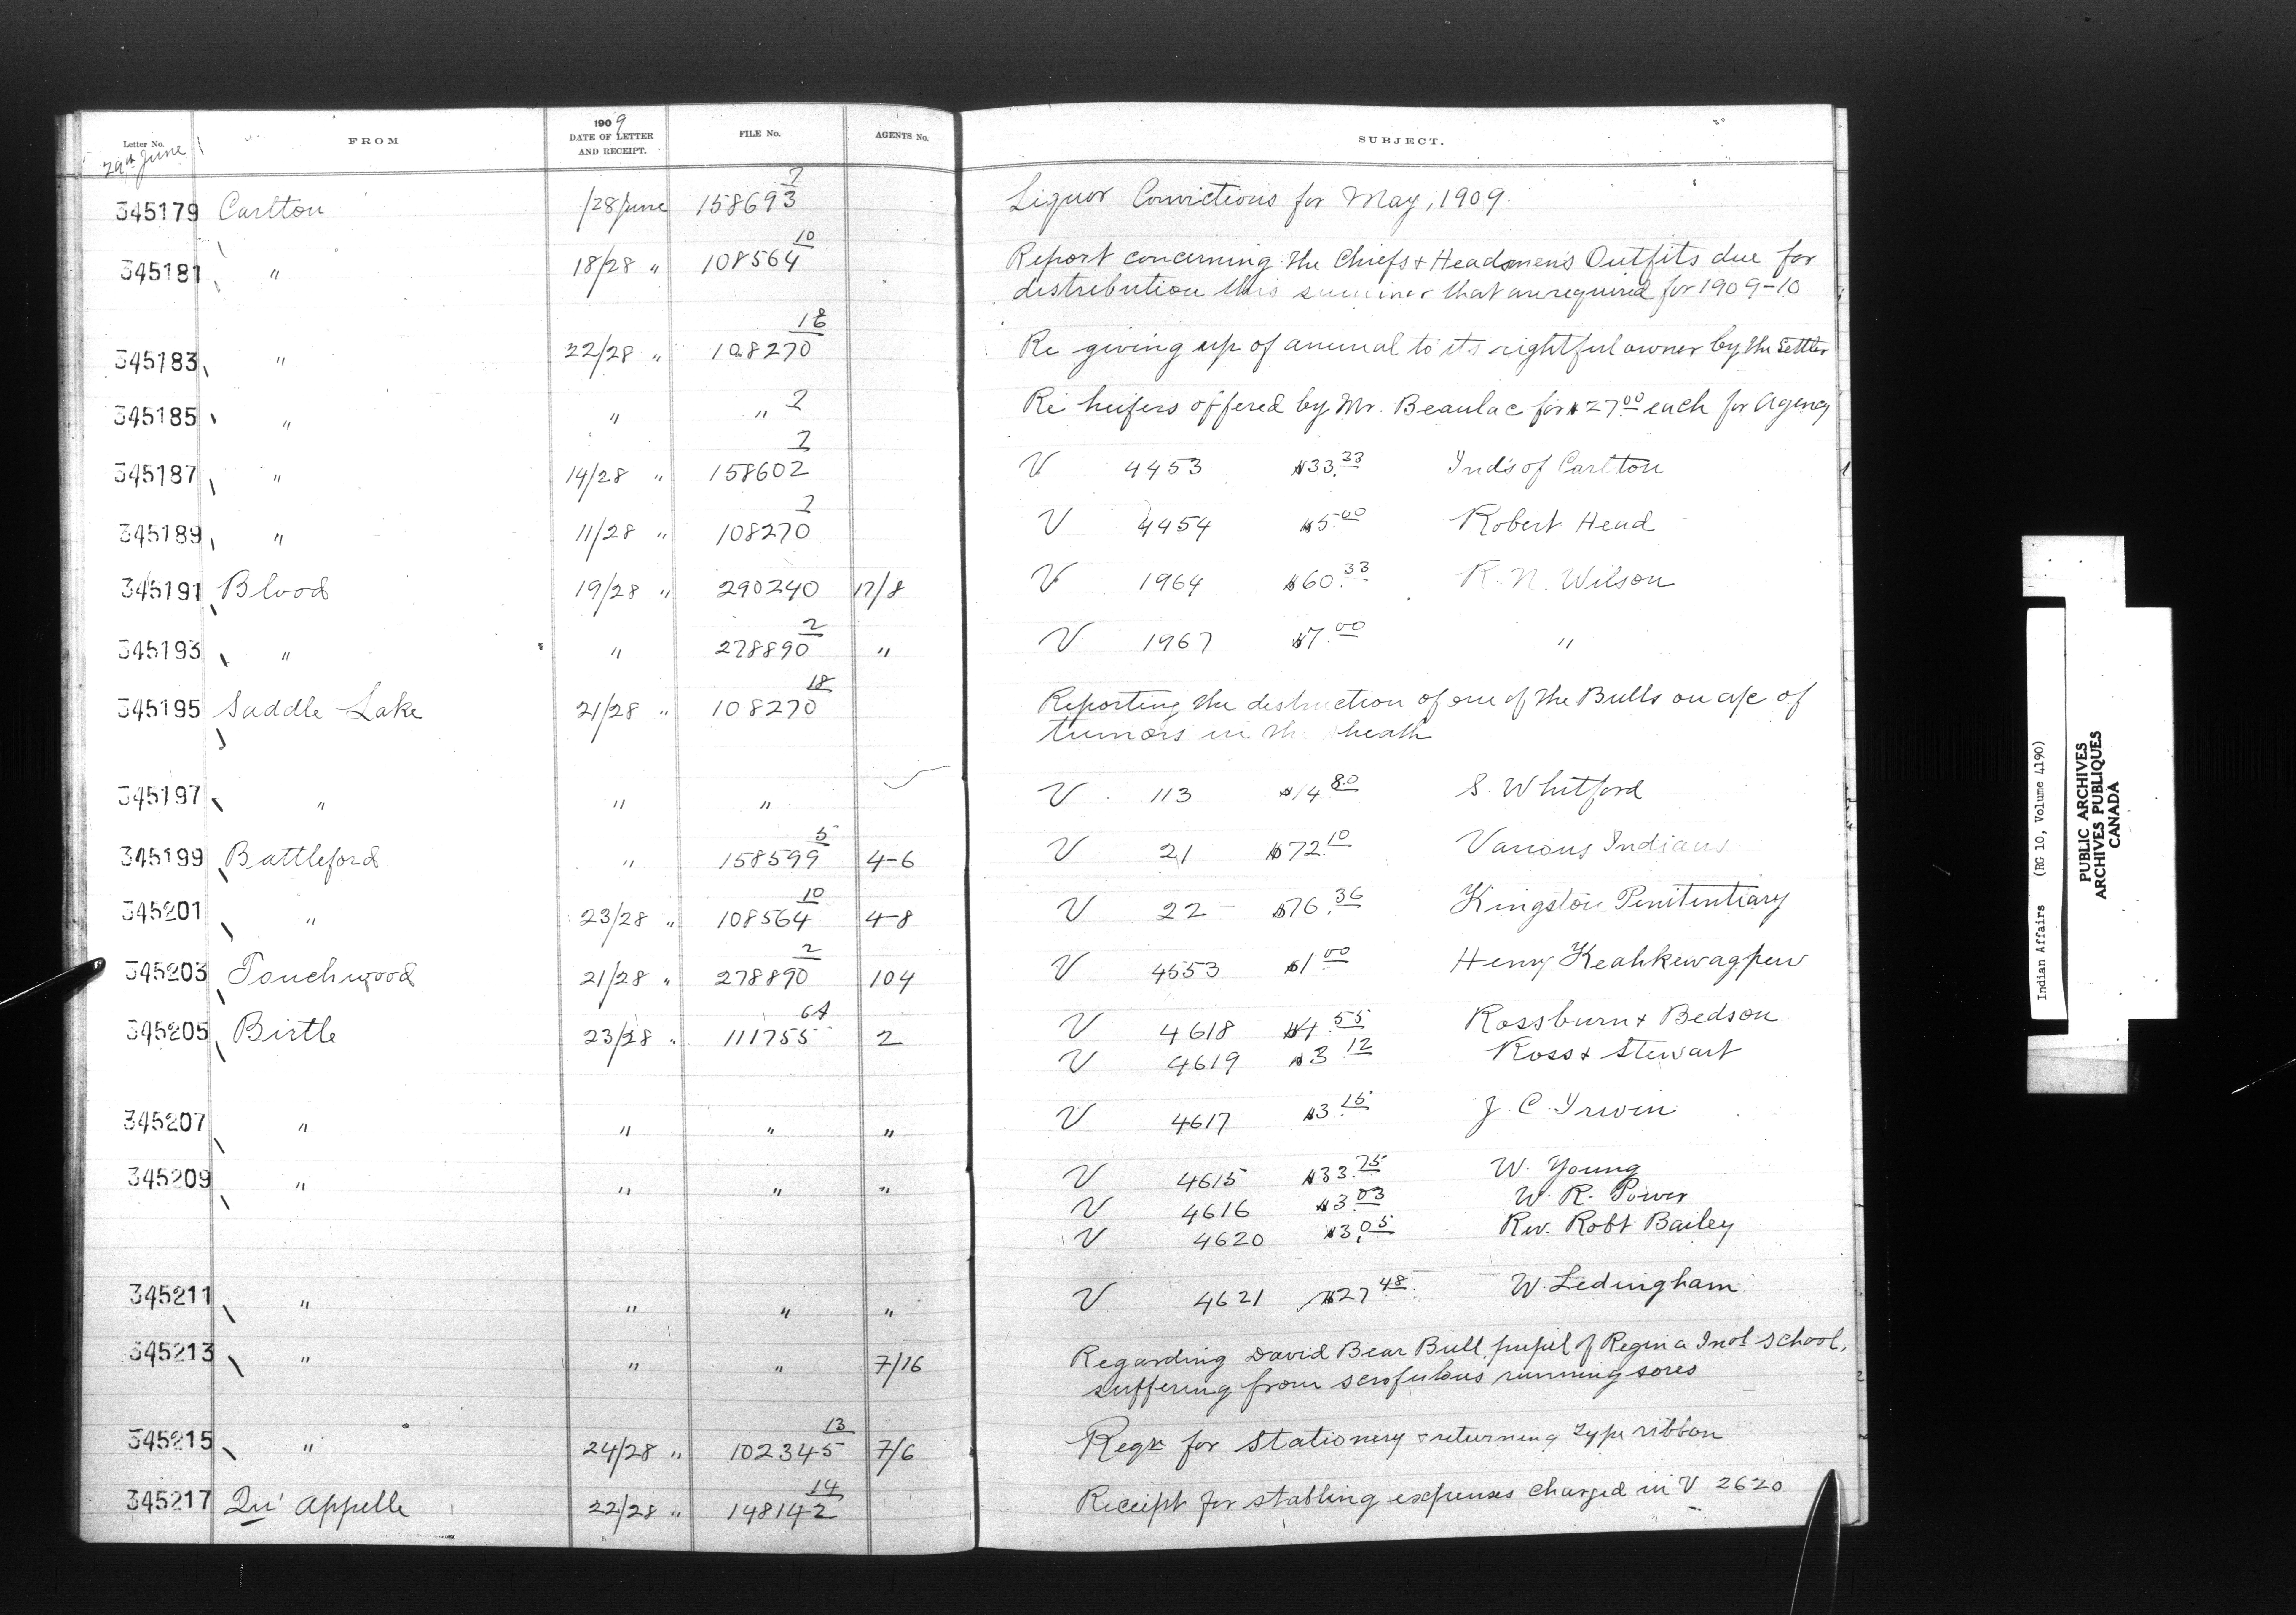 Letter No. FROM 1909 DATE OF LETTER AND RECEIPT. FILE No. AGENTS No. SUBJECT.
29th June
345179 Carlton /28 June 158693 2 Liquor Convictions for May, 1909.
345181 " 18/28 " 108564 10 Report concerning the Chiefs & Headsmen's Outfits due for
distribution this summer that are required for 1909-10
345183 " 22/28 " 108270 18 Re giving up of animal to its rightful owner by the Settler
345185 " " " 2 Re heifers offered by Mr. Beaulac for $27.00 each for Agency
345187 " 14/28 " 158602 2 V 4453 $33.33 Inds of Carlton
345189 " 11/28 " 108270 2 V 4454 $5.00 Robert Head
345191 Blood 19/28 " 290240 17/8 V 1964 $60.33 R. N. Wilson
345193 " " 278890 2 " V 1967 $7.00 "
345195 Saddle Lake 21/28 " 108270 18 Reporting the destruction of one of the Bulls on a/c of
tumors in th heath
345197 " " " V 113 $14.80 S. Whitford
345199 Battleford " 158599 5 4-6 V 21 $72.10 Various Indians
345201 " 23/28 " 108564 10 4-8 V 22 $76.36 Kingston Penitentiary
345203 Touchwood 21/28 " 278890 2 104 V 4553 $1.00 Henry Keahkewagpew
345205 Birtle 23/28 " 111755 6A 2 V 4618 $4.55 Rossburn & Bedson
V 4619 $3.12 Ross & Stewart
345207 " " " " V 4617 $3.15 J. C. Irwin
345209 " " " " V 4615 $33.75 W. Young
V 4616 $3.03 W. R. Power
V 4620 $3.05 Rev. Robt Bailey
345211 " " " " V 4621 $27.48 W. Ledingham
345213 " " " 7/16 Regarding David Bear Bull, pupil of Regina Indl School,
suffering from scrofulous running sores
345215 " 24/28 " 102345 13 7/6 Reqn for Stationery & returning type ribbon
345217 Qu' Appelle 22/28 " 148142 14 Receipt for stabling expenses charged in V 2620
Indian Affairs (RG 10, Volume 4190)
PUBLIC ARCHIVES
ARCHIVES PUBLIQUES
CANADA